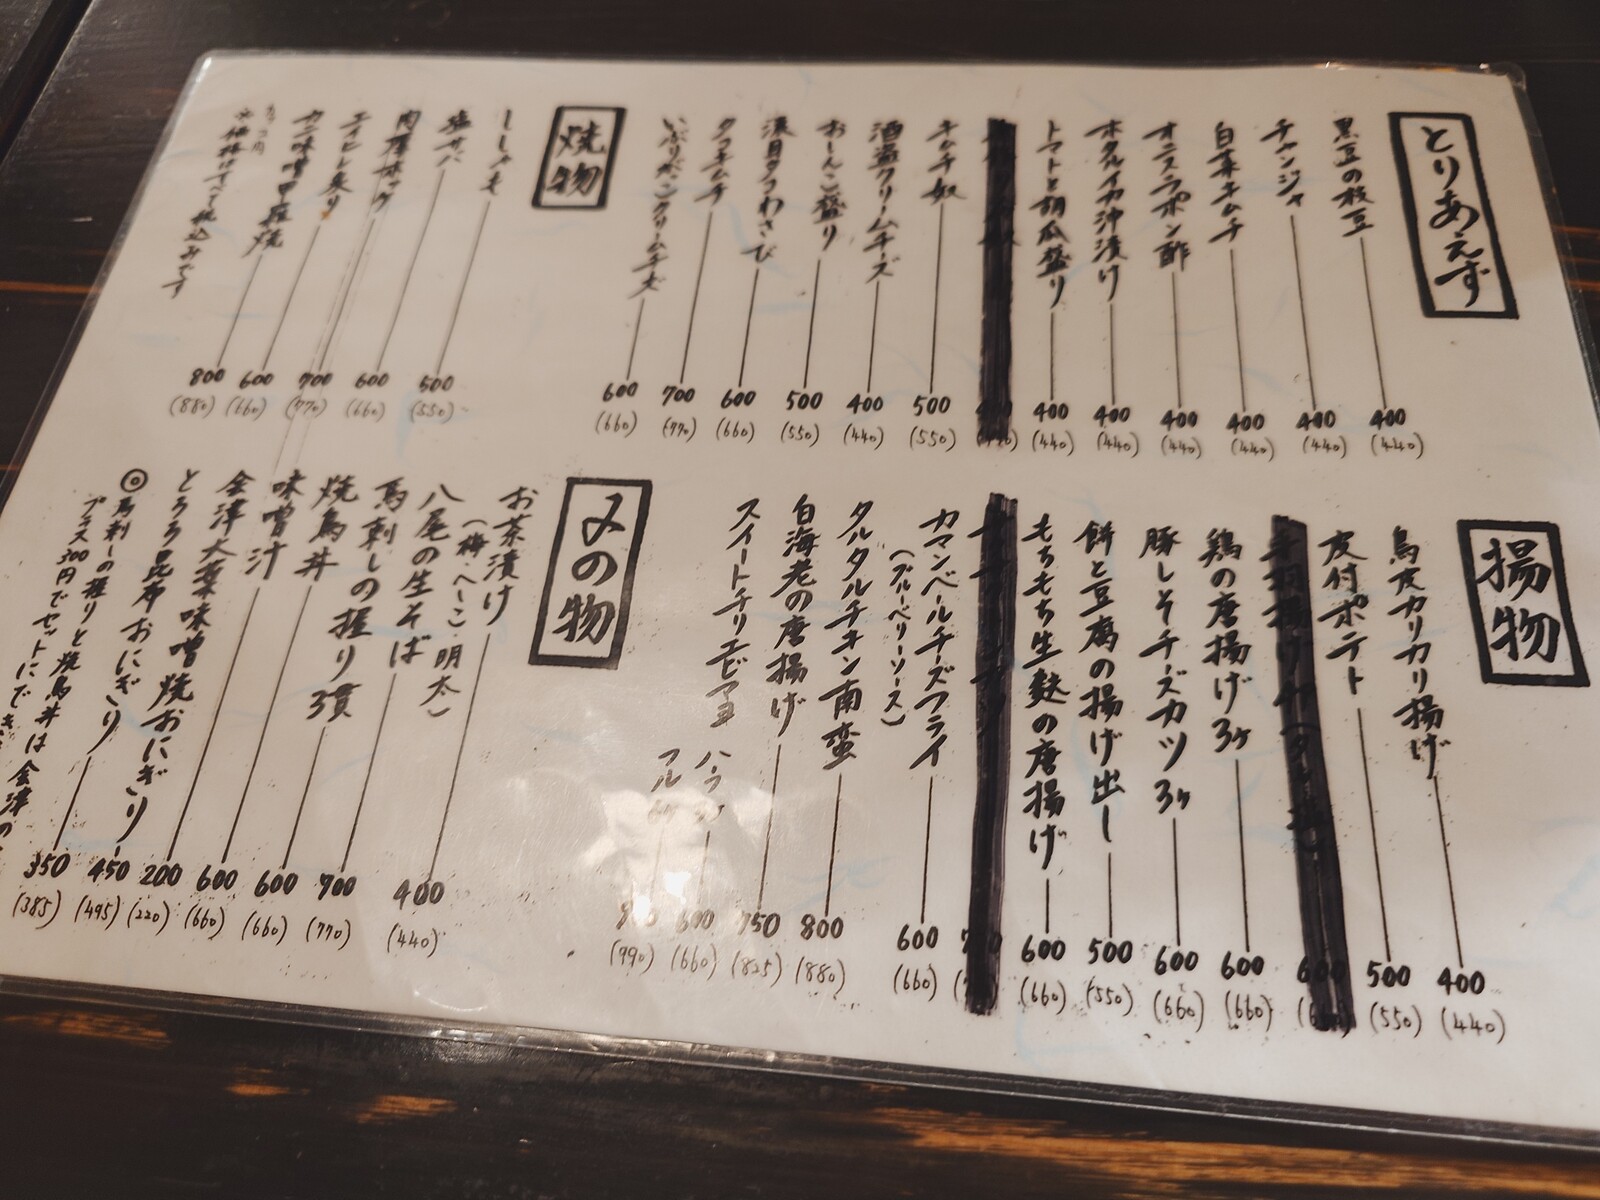 とりあえず
黒豆の枝豆 400 (440)
チャンジャ 400 (440)
白菜キムチ 400 (440)
オニスラポン酢 400 (440)
ホタルイカ沖漬け 400 (440)
トマトと胡瓜盛り 400 (440)
キムチ奴 500 (550)
酒盗クリームチーズ 400 (440)
おしんこ盛り 500 (550)
浜目タコわさび 600 (660)
タコキムチ 700 (770)
いぶりガッコクリームチーズ 600 (660)
焼物
ししゃも 500 (550)
塩サバ 600 (660)
肉厚ホッケ 700 (770)
エイヒレ炙り 600 (660)
カニ味噌甲羅焼 800 (880)
価格はすべて税込みです
揚物
鳥皮カリカリ揚げ 400 (440)
皮付ポテト 500 (550)
600
鶏の唐揚げ3ヶ 600 (660)
豚しそチーズカツ3ヶ 600 (660)
餅と豆腐の揚げ出し 500 (550)
もちもち生麩の唐揚げ 600 (660)
カマンベールチーズフライ 600 (660)
(ブルーベリーソース)
タルタルチキン南蛮 800 (880)
白海老の唐揚げ 750 (825)
スイートチリエビマヨ
ハーフ 600 (660)
フル (990)
〆の物
お茶漬け 400 (440)
(梅・へしこ・明太)
八尾の生そば 700 (770)
馬刺しの握り3貫 600 (660)
焼鳥丼 600 (660)
味噌汁 200 (220)
会津大葉味噌焼おにぎり 450 (495)
とろろ昆布おにぎり 350 (385)
◎馬刺しの握りと焼鳥丼は会津の
プラス300円でセットにでき